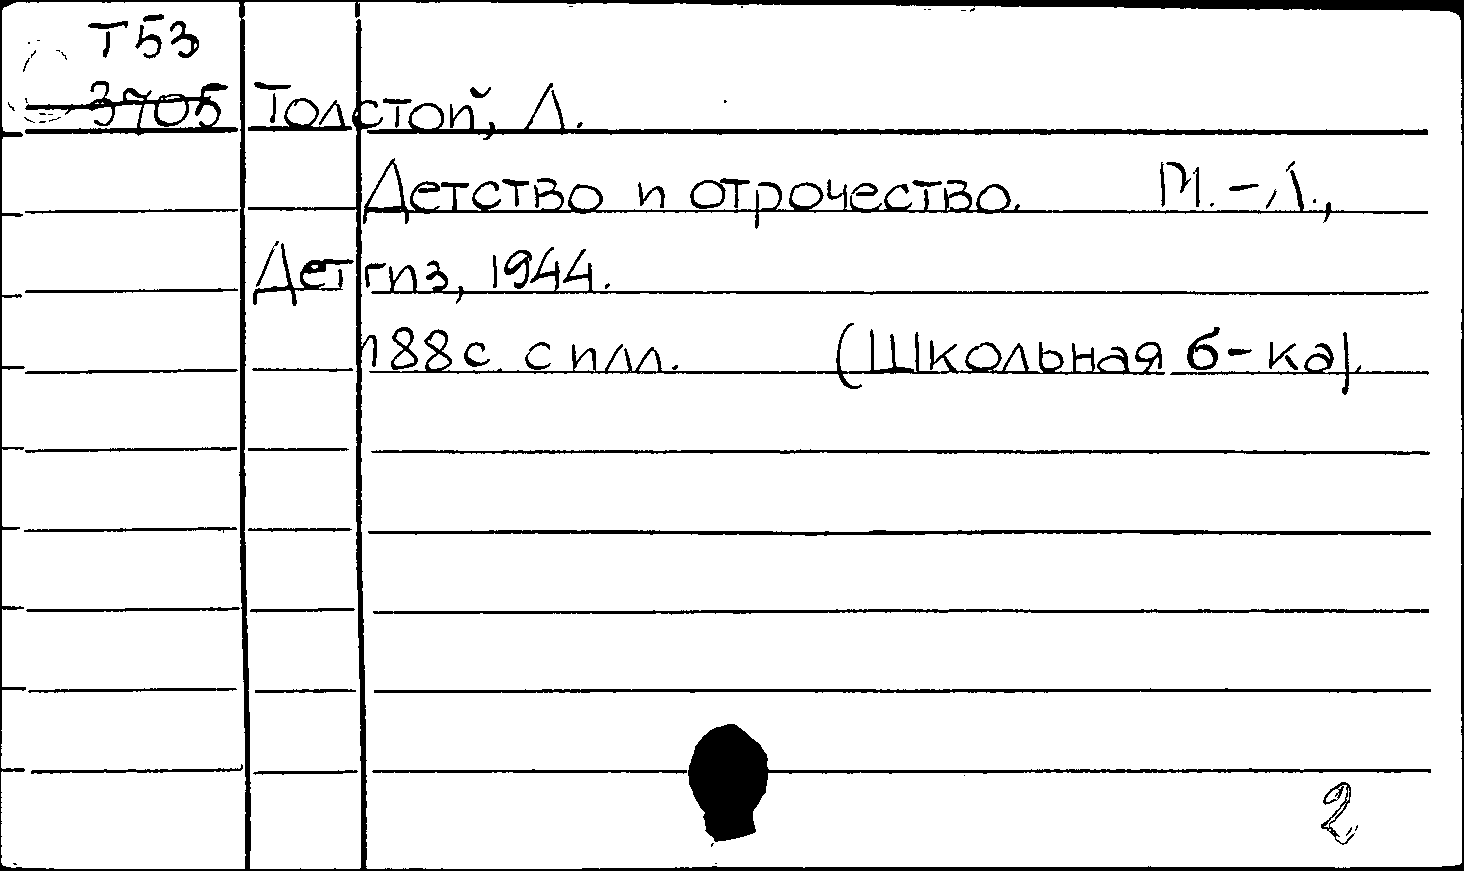 Т53
3705 Толстой, Л.
Детство и отрочество. М.-Л.,
Детгиз, 1944.
188с. с илл. (Школьная б-ка).
2